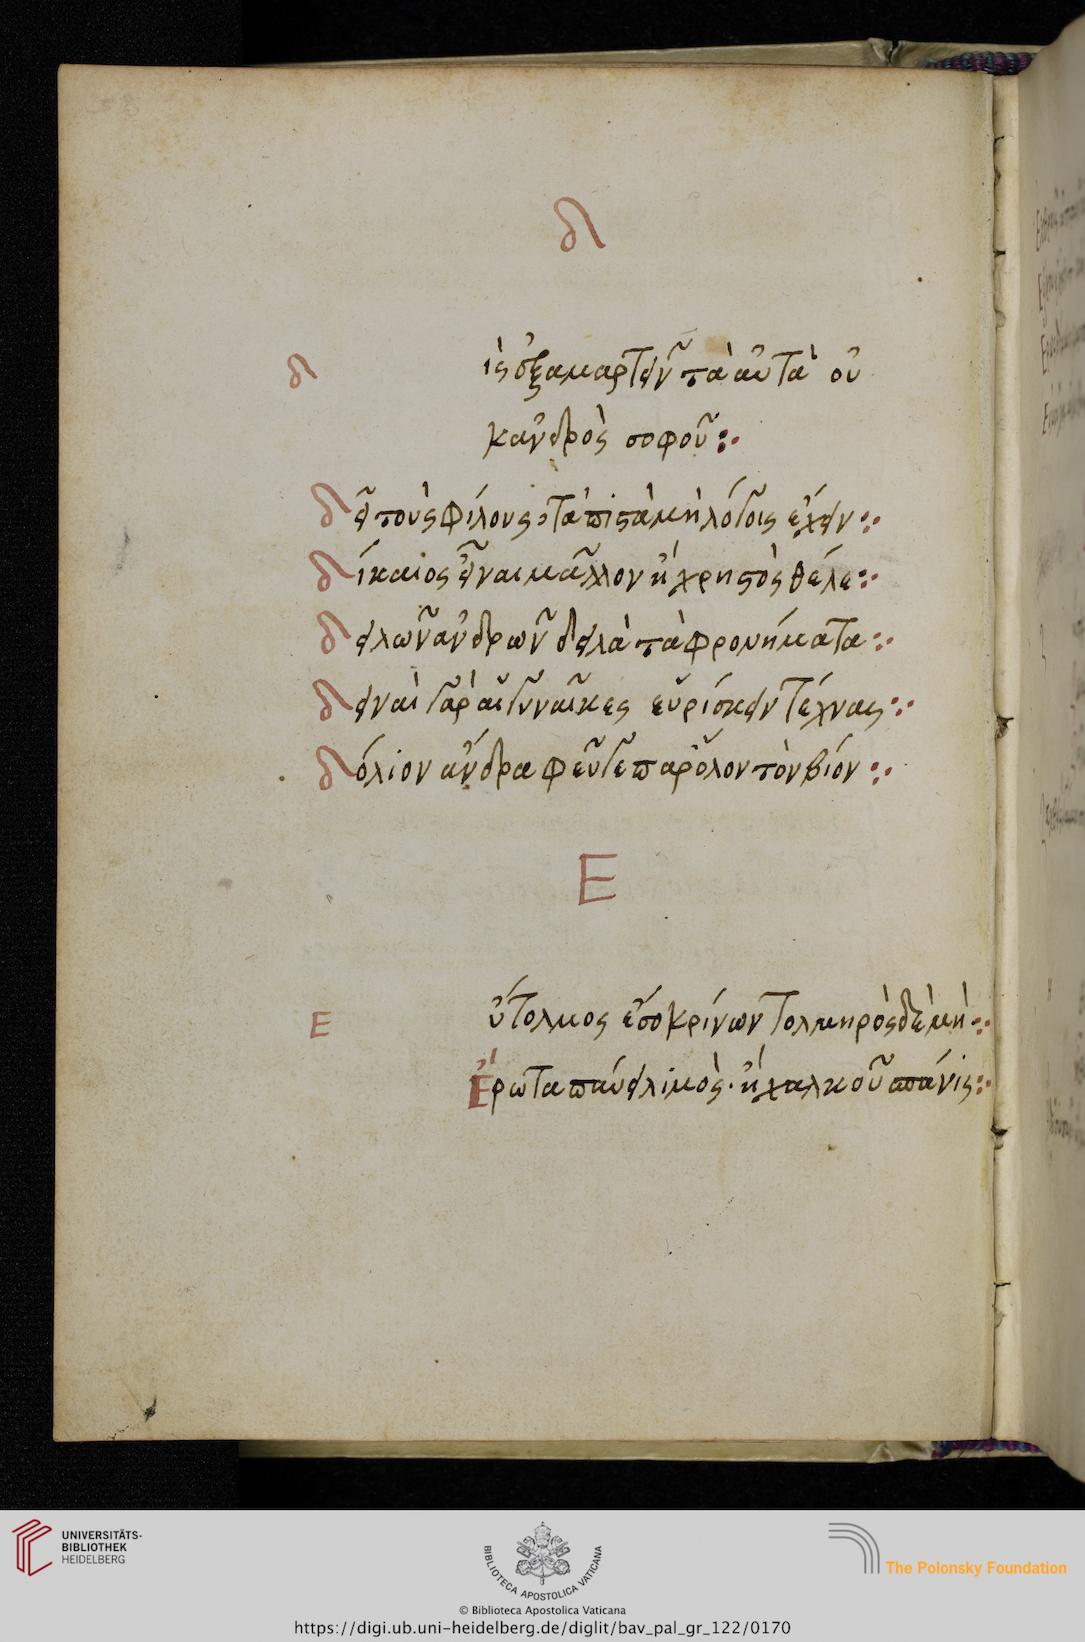 δ
δὶς ἐξαμαρτεῖν τὰ αὐτὰ οὐ
κανδρὸς σοφοῦ:·
δεῖ τοὺς φίλους τὰ πιστὰ μὴ λόγοις ἔχειν:·
δίκαιος εἶναι μᾶλλον ἢ χρηστὸς θέλε:·
δειλῶν ἀνδρῶν δειλὰ τὰ φρονήματα:·
δειναὶ γὰρ αἱ γυναῖκες εὑρίσκειν τέχνας:·
δόλιον ἄνδρα φεῦγε παρόλον τὸν βίον:·
Ε
Εὔτολμος ἔσο κρίνων τολμηρὸς δὲ μή:·
Ἔρωτα παύει λιμὸς· ἢ χαλκοῦ σπάνις:·
UNIVERSITÄTS-
BIBLIOTHEK
HEIDELBERG
BIBLIOTECA APOSTOLICA VATICANA
© Biblioteca Apostolica Vaticana
The Polonsky Foundation
https://digi.ub.uni-heidelberg.de/diglit/bav_pal_gr_122/0170